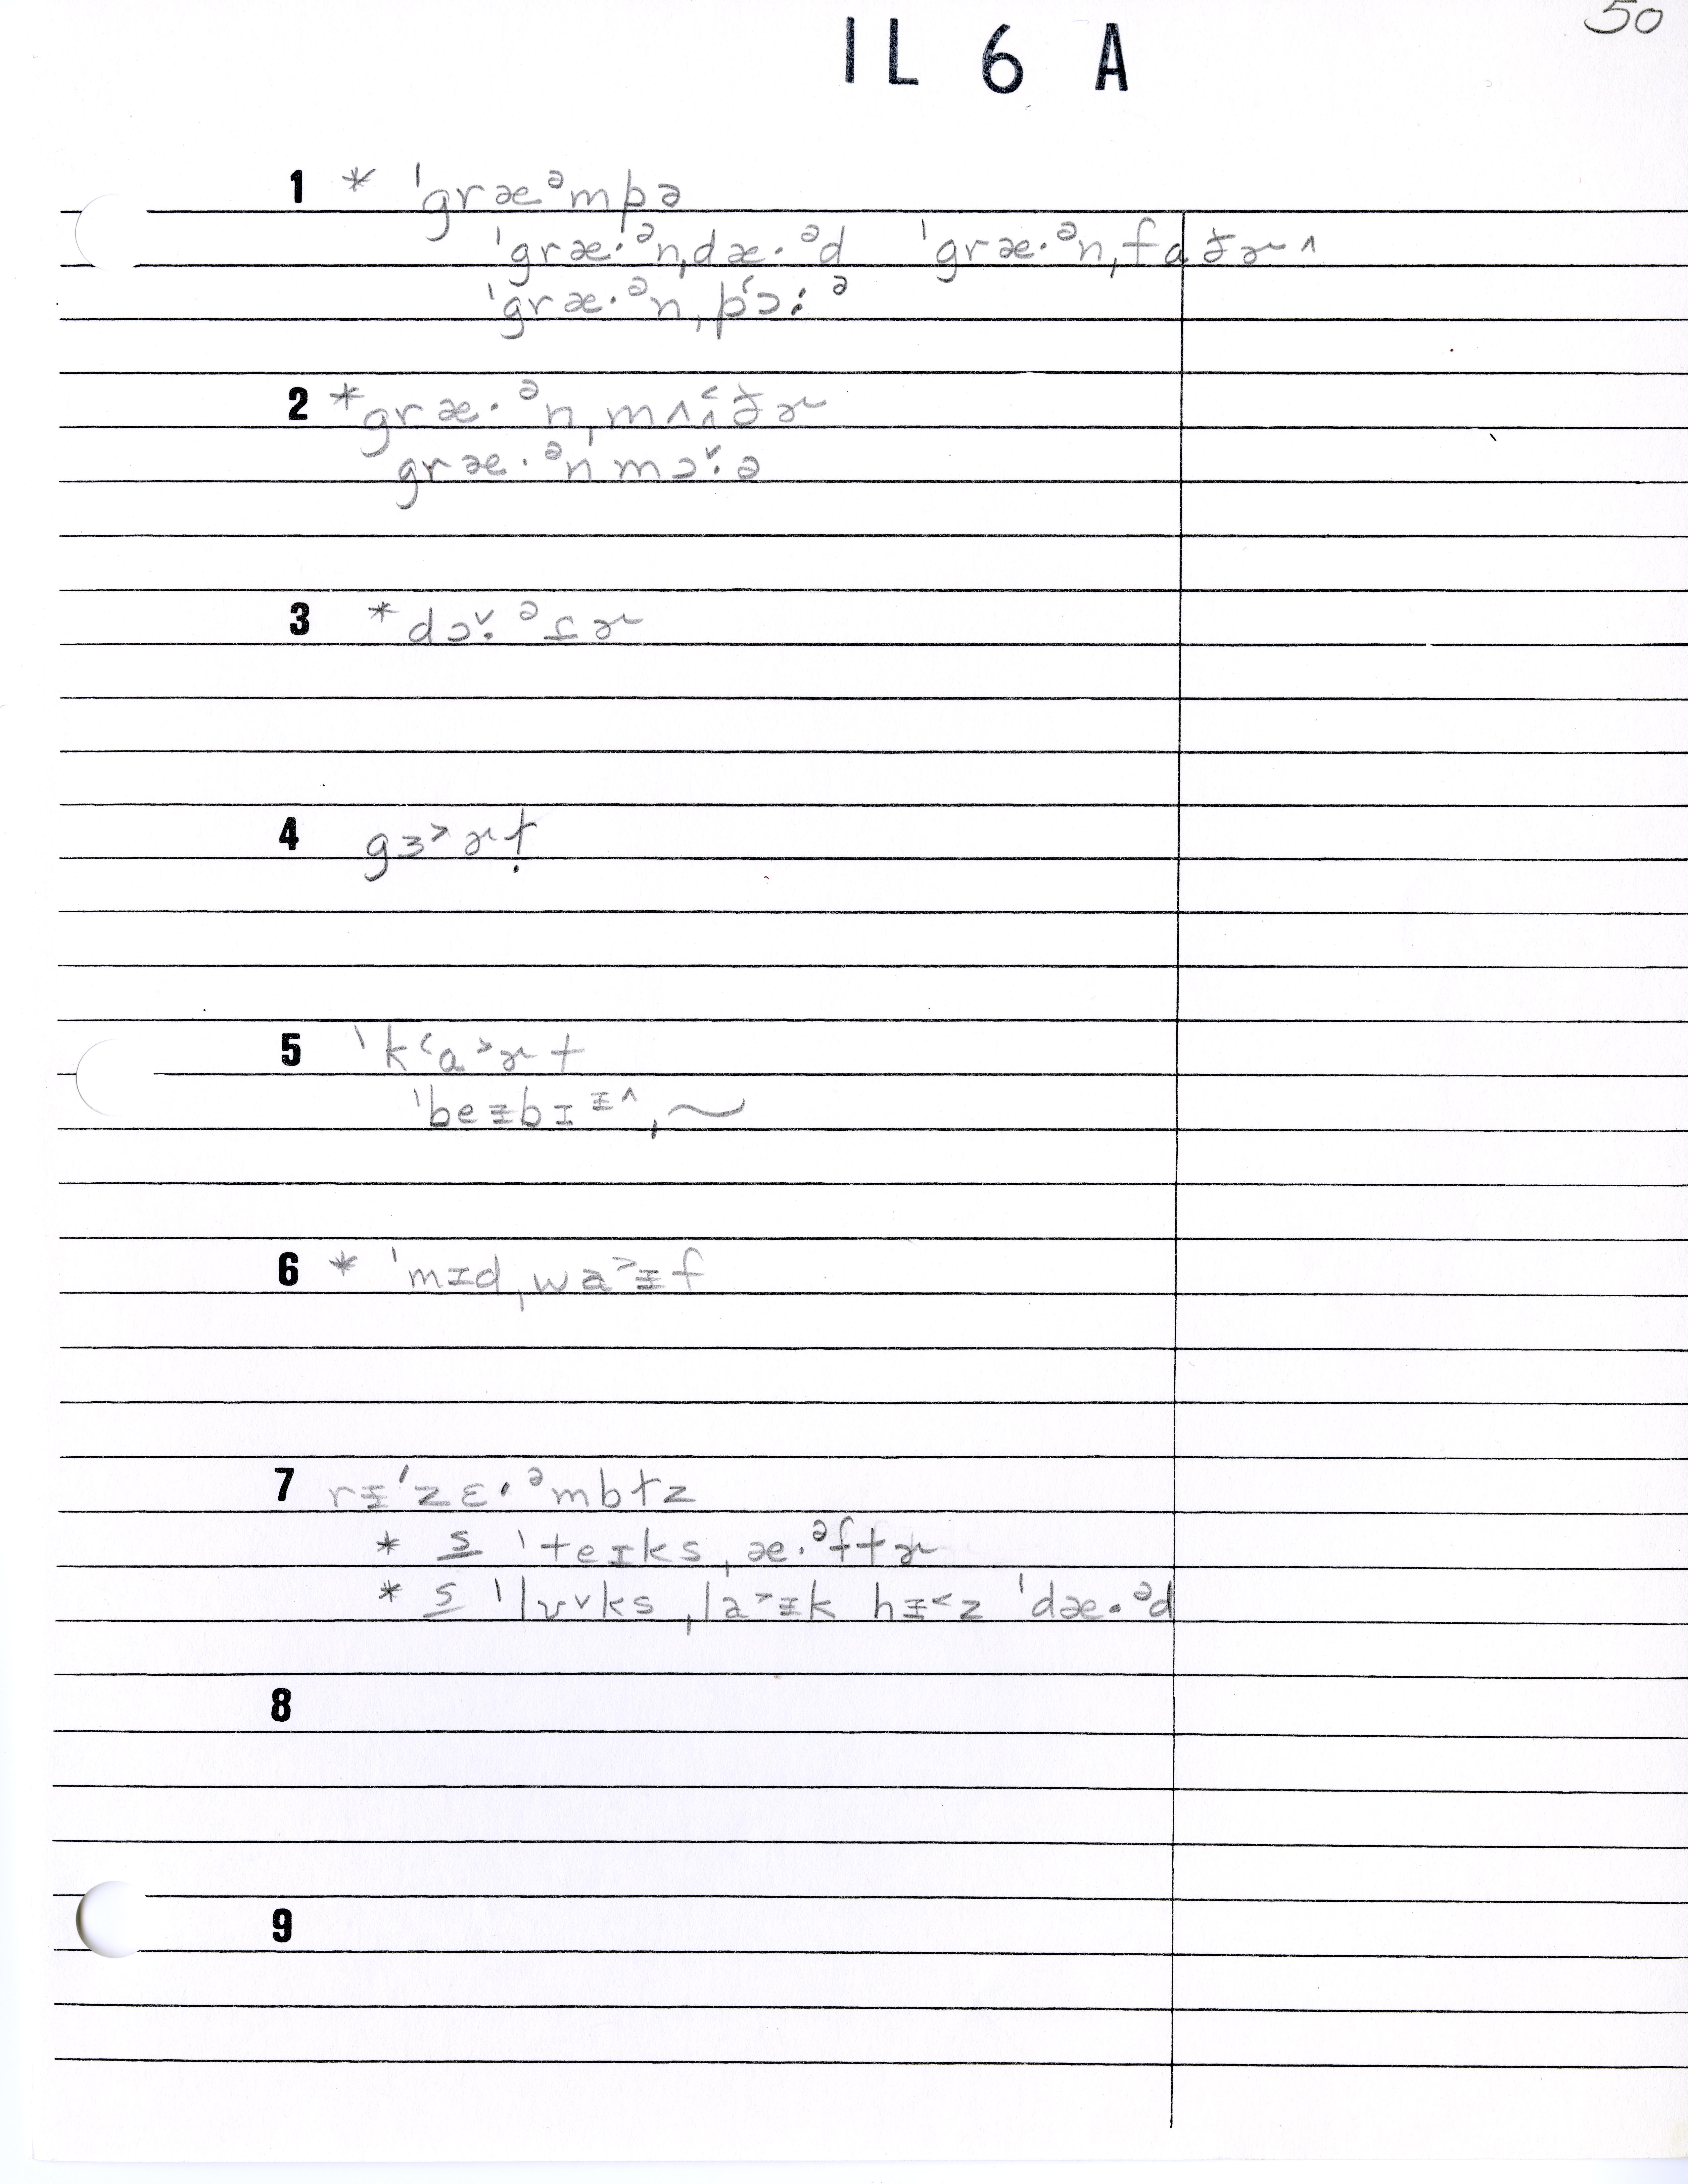 50
IL 6 A
1 * ˈgræᵊmpə
ˈgræ·ᵊnˌdæ·ᵊd ˈgræ·ᵊnˌfɑðɚ^
ˈgræ·ᵊnˌpʻɔ:ᵊ
2 *græ·ᵊnˌmʌðɚ
græ·ᵊnˈmɔ˅·ə
3 *dɔ˅·ᵊfɚ
4 gɜ˃ɚɫ
5 ˈkʻa˃ɚt
ˈbeɪbɪᶦ^ˌ~
6 * ˈmɪdˌwa˃ɪf
7 rɪˈzɛ·ᵊmbɫz
* s ˈteɪksˌæ·ᵊftɚ
* s ˈlʊ˅ksˌla˃ɪk hɪ˂z ˈdæ·ᵊd
8
9